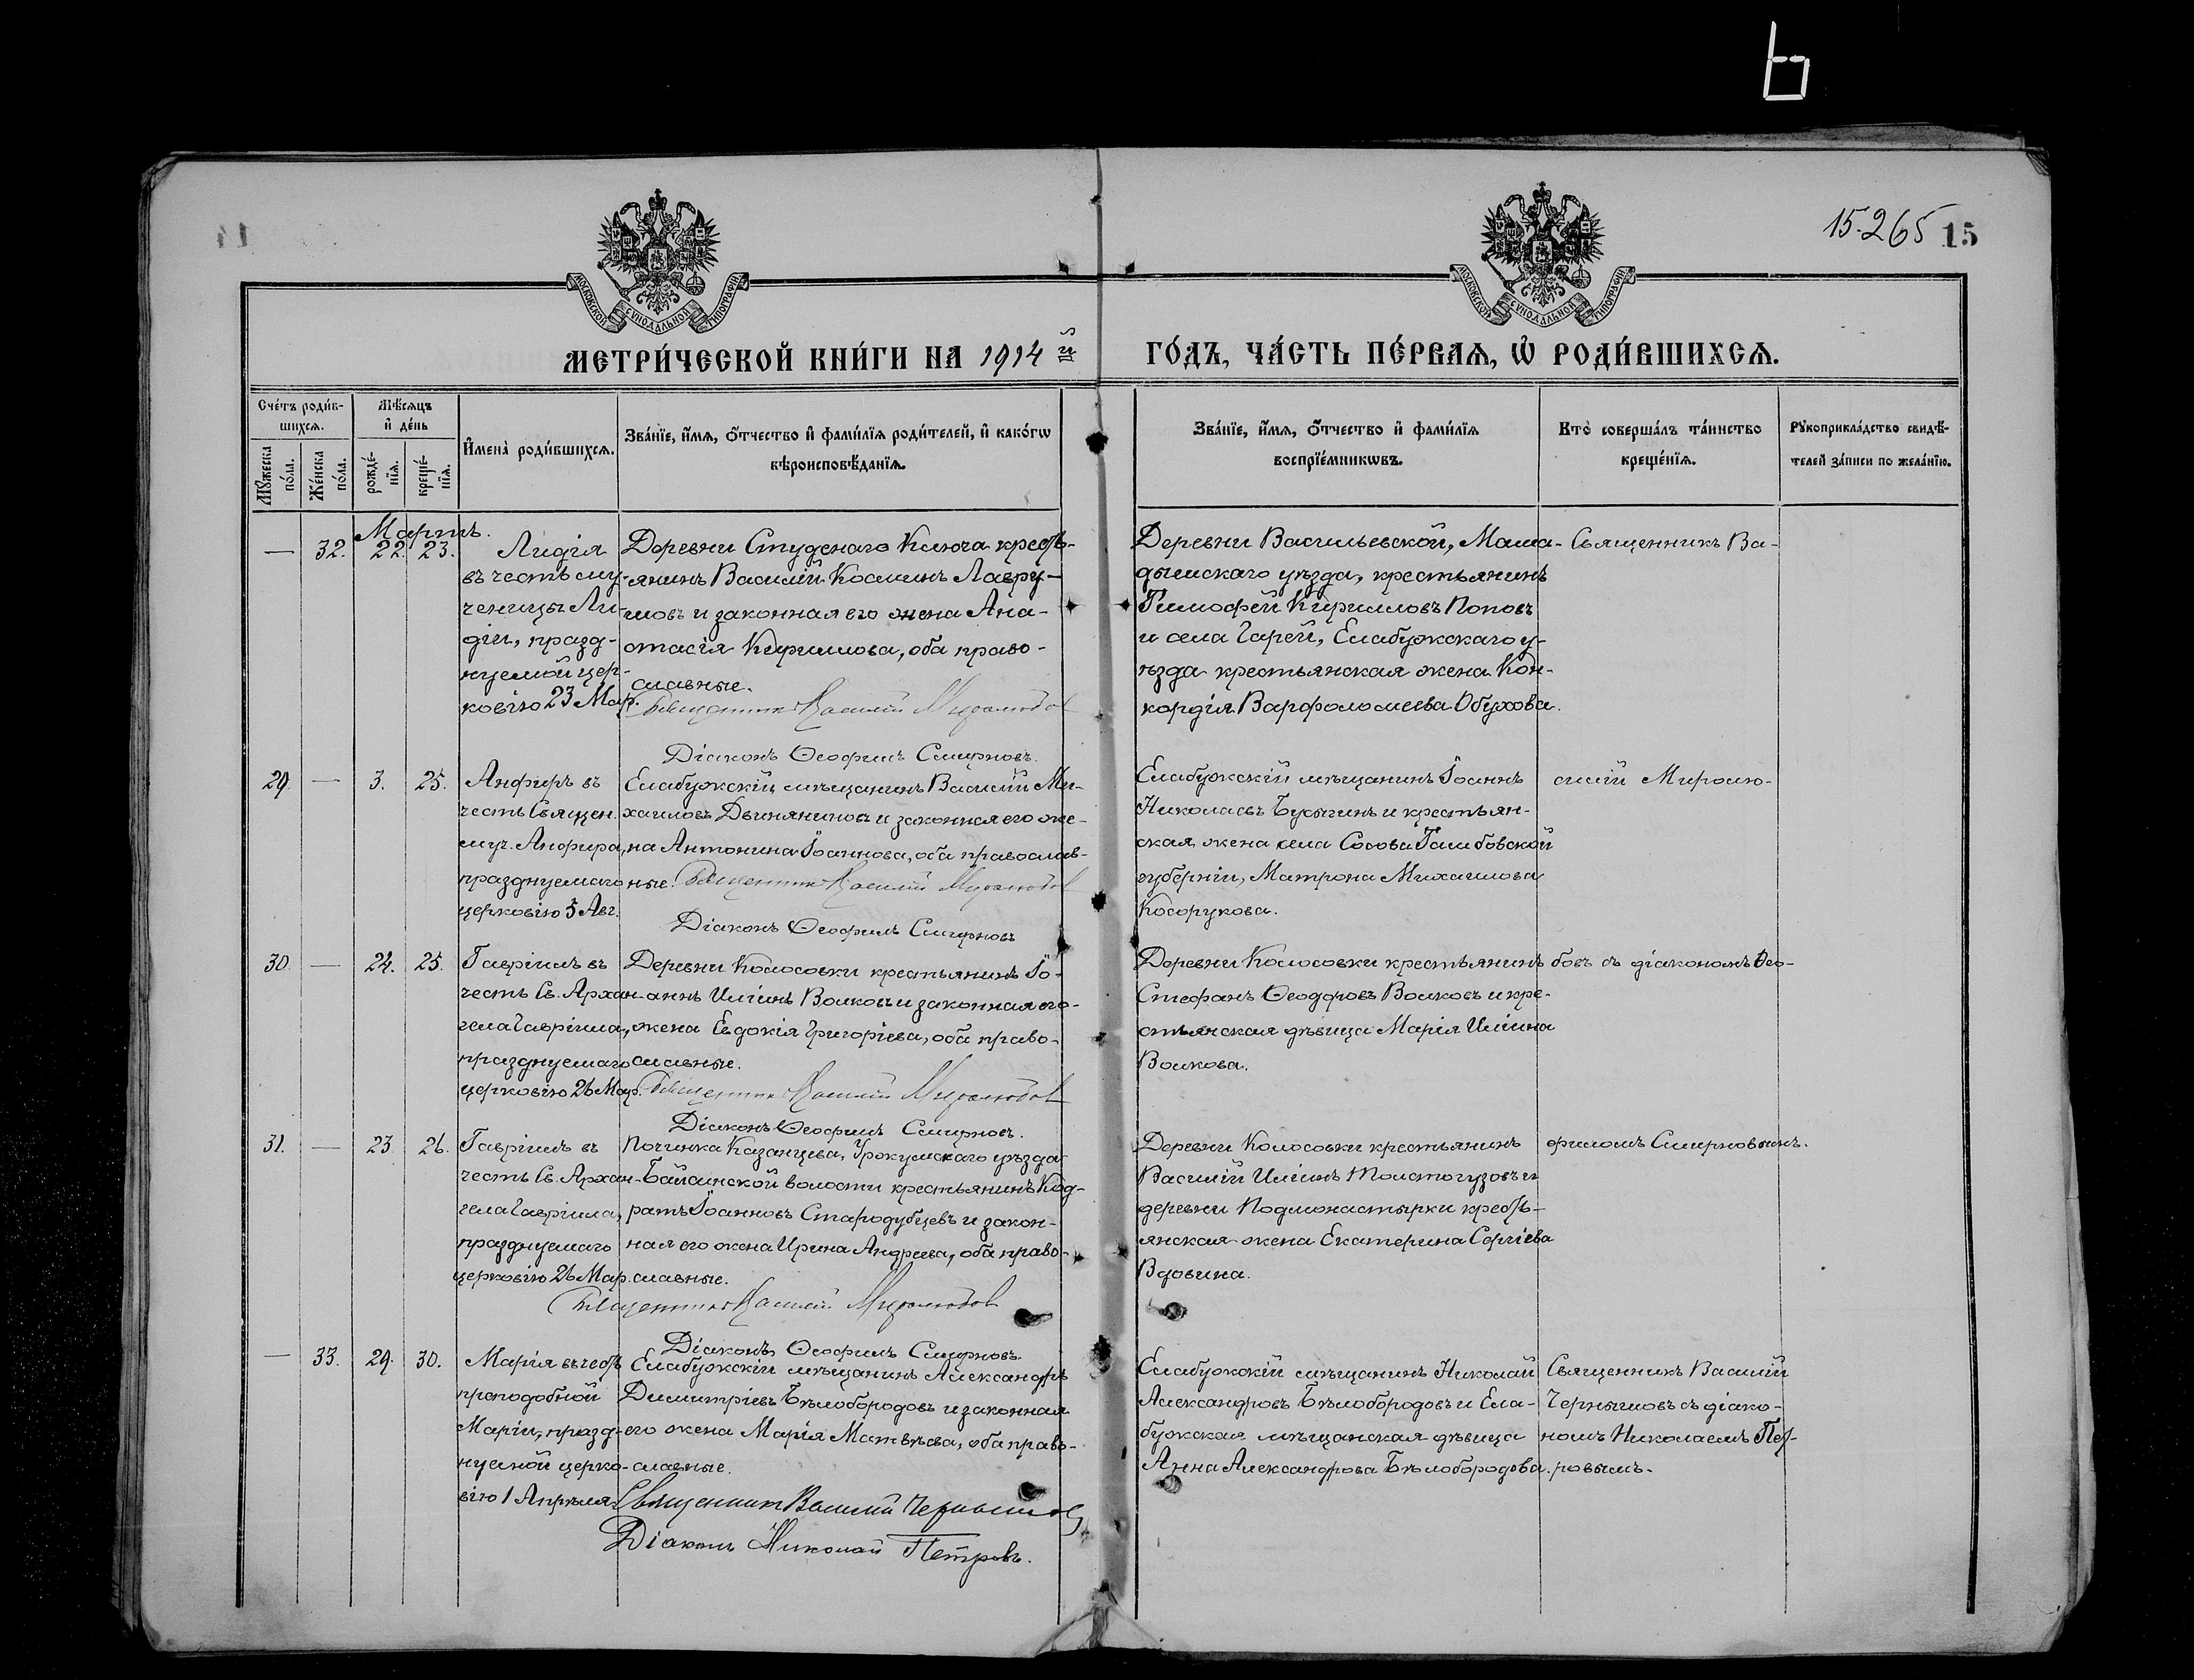 15-265 15
МОСКОВСКОЙ СУНОДАЛЬНОЙ ТИПОГРАФІИ
МОСКОВСКОЙ СУНОДАЛЬНОЙ ТИПОГРАФІИ
МЕТРИ́ЧЕСКОЙ КНИ́ГИ НА 1914 й
ГО́ДЪ, ЧА́СТЬ ПЕ́РВАѦ, Ѡ҆ РОДИ́ВШИХСѦ.
Сче́тъ роди́в-
шихсѧ.
Мꙋжеска по́ла.
Же́нска по́ла.
Мѣ́сѧцъ
и҆ де́нь
рожде́-
нїѧ.
креще́-
нїѧ.
И҆мена̀ роди́вшихсѧ.
Зва́нїе, и҆́мѧ, ѻ҆́тчество и҆ фами́лїѧ роди́телей, и҆ како́гѡ
вѣроисповѣ́данїѧ.
Зва́нїе, и҆́мѧ, ѻ҆́тчество и҆ фами́лїѧ
воспрїе́мникѡвъ.
Кто̀ соверша́лъ та́инство
креще́нїѧ.
Рꙋкоприкла́дство свидѣ́-
телей за́писи по жела́нїю.
Мартъ.
— 32. 22. 23.
Лидія
въ честь му-
ченицы Ли-
діи, празд-
нуемой цер-
ковію 23 Мар.
Деревни Студенаго Ключа кресть-
янинъ Василій Косминъ Лавру-
шовъ и законная его жена Ана-
стасія Кириллова, оба право-
славные.
Священникъ Василій Миролюбов
Діаконъ Ѳеофилъ Смирновъ.
Деревни Васильевской, Мама-
дышскаго уѣзда, крестьянинъ
Тимофей Кирилловъ Поповъ
и села Гарей, Елабужскаго у-
ѣзда крестьянская жена Кон-
кордія Варфоломеева Обухова.
Священникъ Ва-
29. — 3. 25.
Анфиръ въ
честь Священ.
муч. Анфира,
празднуемаго
церковію 5 Авг.
Елабужскій мѣщанинъ Василій Ми-
хаиловъ Двиняниновъ и законная его же-
на Антонина Іоаннова, оба православ-
ные. Священникъ Василій Миролюбов
Діаконъ Ѳеофилъ Смирновъ
Елабужскій мѣщанинъ Іоаннъ
Николаевъ Бусыгинъ и крестьян-
ская жена села Сосова Тамбовской
губерніи, Матрона Михаилова
Косорукова.
силій Миролю-
30. — 24. 25.
Гавріилъ въ
честь Св. Архан-
гела Гавріила,
празднуемаго
церковію 26 Мар.
Деревни Колосовки крестьянинъ Іо-
аннъ Иліинъ Волковъ и законная его
жена Евдокія Григоріева, оба право-
славные.
Священникъ Василій Миролюбов
Діаконъ Ѳеофилъ Смирновъ.
Деревни Колосовки крестьянинъ
Стефанъ Ѳеодоровъ Волковъ и кре-
стьянская дѣвица Марія Иліина
Волкова.
бовъ съ діакономъ Ѳео-
31. — 23. 26.
Гавріилъ въ
честь Св. Архан-
гела Гавріила,
празднуемаго
церковію 26 Мар.
Починка Казанцева, Уржумскаго уѣзда
Байсинской волости крестьянинъ Код-
ратъ Іоанновъ Стародубцевъ и закон-
ная его жена Ирина Андреева, оба право-
славные.
Священникъ Василій Миролюбов
Діаконъ Ѳеофилъ Смирновъ.
Деревни Колосовки крестьянинъ
Василій Иліинъ Толстогузовъ и
деревни Подмонастырки кресть-
янская жена Екатерина Сергіева
Вдовина.
филомъ Смирновымъ.
— 33. 29. 30.
Марія въ честь
преподобной
Маріи, празд-
нуемой церко-
вію 1 Апрѣля
Елабужскій мѣщанинъ Александръ
Димитріевъ Бѣлобородовъ и законная
его жена Марія Матвѣева, оба право-
славные.
Священникъ Василій Чернышовъ
Діаконъ Николай Петровъ.
Елабужскій мѣщанинъ Николай
Александровъ Бѣлобородовъ и Ела-
бужская мѣщанская дѣвица
Анна Александрова Бѣлобородова.
Священникъ Василій
Чернышовъ съ діако-
номъ Николаемъ Пет-
ровымъ.